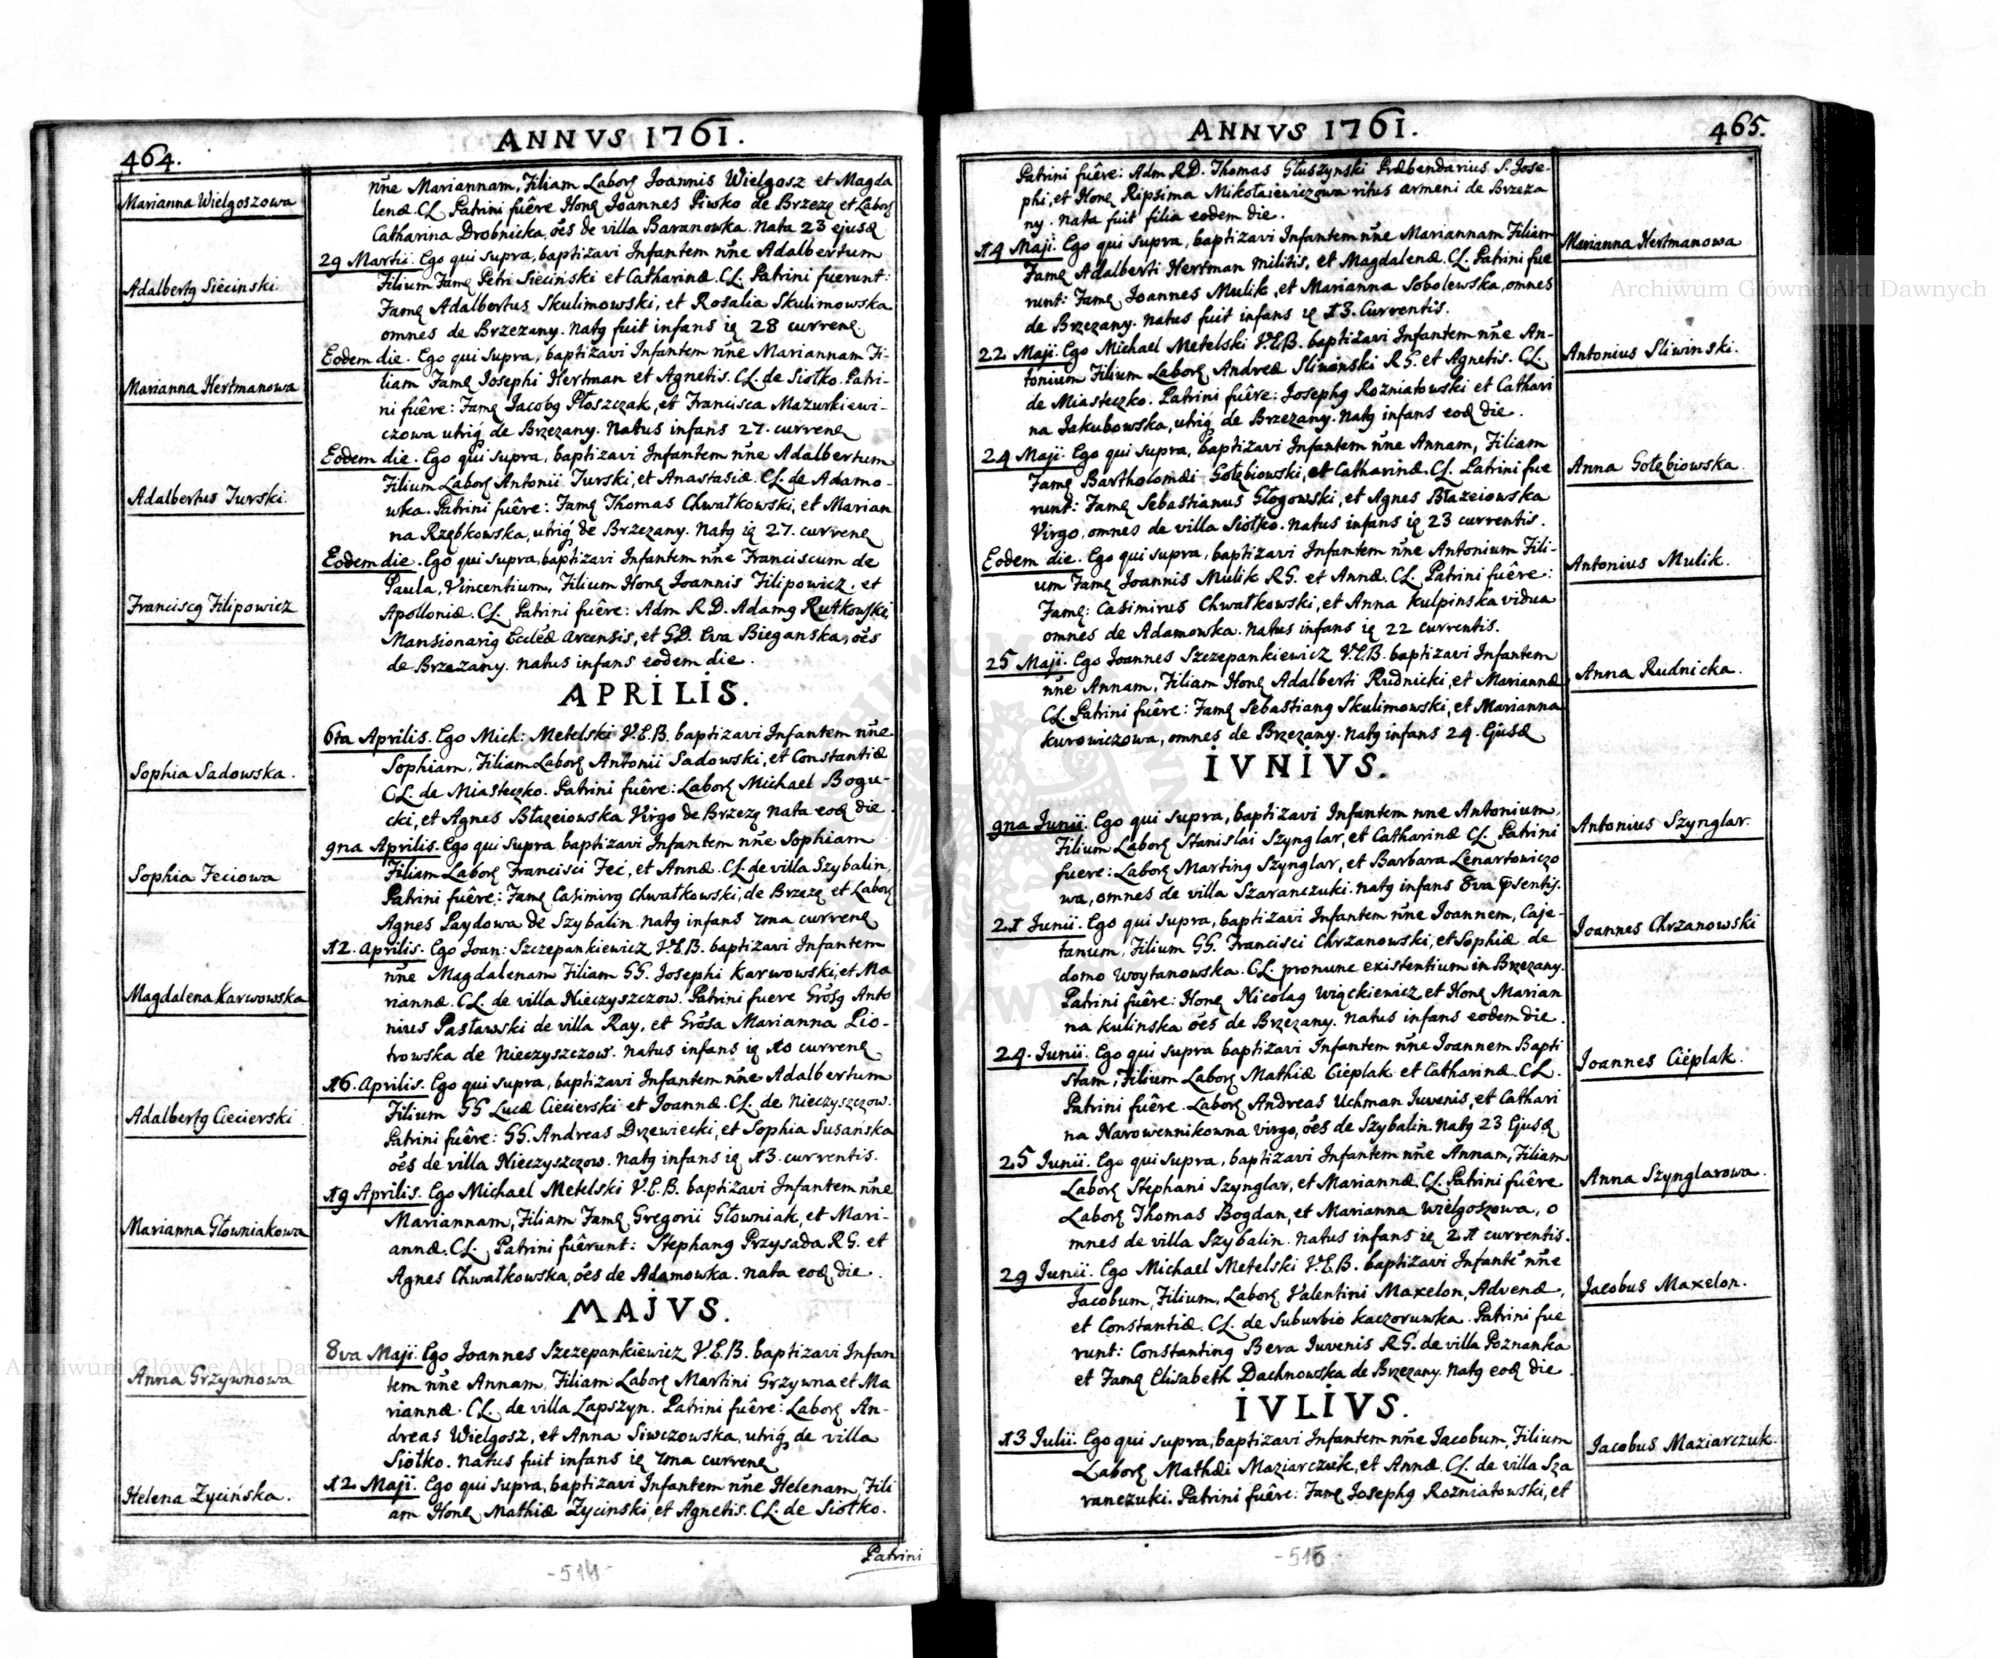 464.
ANNVS 1761.
Marianna Wielgoszowa
nn̄e Mariannam, Filiam Laborꝫ Joannis Wielgosz et Magda
lenæ CL Patrini fuêre Honꝫ Joannes Piwko de Brzezꝫ et Laborꝫ
Catharina Drobnicka, ōes de villa Baranowka. Nata 23 ejusꝫ
29 Martii. Ego qui supra, baptizavi Infantem nn̄e Adalbertum
Adalbertꝫ Siecinski
Filium Famꝫ Petri Sieciński et Catharinæ. CL. Patrini fuerunt:
Famꝫ Adalbertus Skulimowski, et Rosalia Skulimowska
omnes de Brzezany. Natꝫ fuit infans iꝫ 28 currenꝫ
Eodem die. Ego qui supra, baptizavi Infantem nn̄e Mariannam Fi-
Marianna Hertmanowa
liam Famꝫ Josephi Hertman et Agnetis. CL. de Siołko. Patri-
ni fuêre: Famꝫ Jacobꝫ Płoszczak, et Francisca Mazurkiewi-
czowa utriꝫ de Brzezany. Natus infans 27. currenꝫ
Eodem die. Ego qui supra, baptizavi Infantem nn̄e Adalbertum
Adalbertus Turski
Filium Laborꝫ Antonii Turski, et Anastasiæ. CL. de Adamo-
wka. Patrini fuêre: Famꝫ Thomas Chwałkowski, et Marian
na Rzębkowska, utriꝫ de Brzezany. Natꝫ iꝫ 27. currenꝫ
Eodem die. Ego qui supra, baptizavi Infantem nn̄e Franciscum de
Franciscꝫ Filipowicz
Paula, Vincentium, Filium Honꝫ Joannis Filipowicz. et
Apolloniæ. CL. Patrini fuêre: Adm R.D. Adamꝫ Rutkowski,
Mansionariꝫ Eccl̄æ Arcensis, et G.D. Eva Bieganska, ōes
de Brzezany. Natus infans eodem die.
APRILIS.
6ta Aprilis. Ego Mich: Metelski V.E.B. baptizavi Infantem nn̄e
Sophia Sadowska.
Sophiam, Filiam Laborꝫ Antonii Sadowski, et Constantiæ
CL. de Miasteczko. Patrini fuêre: Laborꝫ Michael Bogu-
cki, et Agnes Błazeiowska Virgo de Brzezꝫ Nata eoꝫ die
9na Aprilis. Ego qui supra baptizavi Infantem nn̄e Sophiam
Sophia Feciowa
Filiam Laborꝫ Francisci Feć, et Annæ. CL. de villa Szybalin,
Patrini fuêre: Famꝫ Casimirꝫ Chwałkowski, de Brzezꝫ et Laborꝫ
Agnes Paydowa de Szybalin. Natꝫ infans 7ma currenꝫ
12. Aprilis. Ego Joan: Szczepankiewicz V.E.B. baptizavi Infantem
Magdalena Karwowska
nn̄e Magdalenam Filiam GG. Josephi Karwowski, et Ma
riannæ. CL. de villa Nieczyszczow. Patrini fuere Grōsꝫ Anto
nius Pasławski de villa Ray, et Grōsa Marianna Pio-
trowska de Nieczyszczow. Natus infans iꝫ 10 currenꝫ
16. Aprilis. Ego qui supra, baptizavi Infantem nn̄e Adalbertum
Adalbertꝫ Ciecierski
Filium GG Lucæ Ciecierski et Joannæ. CL. de Nieczyszczow.
Patrini fuêre: GG. Andreas Drzewiecki, et Sophia Susańska
ōes de villa Nieczyszczow. Natꝫ infans iꝫ 13. currentis.
19 Aprilis. Ego Michael Metelski V.E.B. baptizavi Infantem nn̄e
Marianna Głowniakowa
Mariannam, Filiam Famꝫ Gregorii Głowniak, et Mari-
annæ. CL. Patrini fuêrunt: Stephanꝫ Przysada R.G. et
Agnes Chwałkowska, ōes de Adamowka. Nata eoꝫ die.
MAJVS.
8va Maji. Ego Joannes Szczepankiewicz V.E.B. baptizavi Infan
Anna Grzywnowa
tem nn̄e Annam, Filiam Laborꝫ Martini Grzywna et Ma
riannæ. CL. de villa Lapszyn. Patrini fuêre: Laborꝫ An-
dreas Wielgosz, et Anna Siwczowska, utriꝫ de villa
Siołko. Natus fuit infans iꝫ 7ma currenꝫ
12 Maji. Ego qui supra, baptizavi Infantem nn̄e Helenam, Fili
Helena Zycińska.
am Honꝫ Mathiæ Zycinski, et Agnetis. CL. de Siołko.
Patrini
-514-
465.
ANNVS 1761.
Patrini fuêre: Adm R.D. Thomas Głuszynski Præbendarius S. Jose-
phi, et Honꝫ Ripsima Mikołaiewiczowa ritus armeni de Brzeza
ny. Nata fuit filia eodem die.
14 Maji. Ego qui supra, baptizavi Infantem nn̄e Mariannam Filiam
Marianna Hertmanowa
Famꝫ Adalberti Hertman militis, et Magdalenæ. CL. Patrini fue
runt: Famꝫ Joannes Mulik, et Marianna Sobolewska, omnes
de Brzezany. Natus fuit infans iꝫ 13. Currentis.
22 Maji. Ego Michael Metelski V.E.B. baptizavi Infantem nn̄e An-
Antonius Sliwinski.
tonium Filium Laborꝫ Andreæ Sliwinski R.G. et Agnetis. CL.
de Miasteczko. Patrini fuêre: Josephꝫ Rozniatowski et Cathari
na Jakubowska, utriꝫ de Brzezany. Natꝫ infans eoꝫ die.
24 Maji. Ego qui supra, baptizavi Infantem nn̄e Annam, Filiam
Anna Gołębiowska
Famꝫ Bartholomæi Gołębiowski, et Catharinæ. CL. Patrini fue
runt: Famꝫ Sebastianus Głogowski, et Agnes Błazeiowska
Virgo, omnes de villa Siołko. Natus infans iꝫ 23 currentis.
Eodem die. Ego qui supra, baptizavi Infantem nn̄e Antonium Fili-
Antonius Mulik.
um Famꝫ Joannis Mulik R.G. et Annæ. CL. Patrini fuêre:
Famꝫ: Casimirus Chwałkowski, et Anna Kulpinska vidua
omnes de Adamowka. Natus infans iꝫ 22 currentis.
25 Maji. Ego Joannes Szczepankiewicz V.E.B. baptizavi Infantem
Anna Rudnicka.
nn̄e Annam, Filiam Honꝫ Adalberti Rudnicki, et Mariannæ
CL. Patrini fuêre: Famꝫ Sebastianꝫ Skulimowski, et Marianna
Kurowiczowa, omnes de Brzezany. Natꝫ infans 24. Ejusꝫ
IVNIVS.
9na Junii. Ego qui supra, baptizavi Infantem nne Antonium,
Antonius Szynglar.
Filium Laborꝫ Stanislai Szynglar, et Catharinæ CL. Patrini
fuere: Laborꝫ Martinꝫ Szynglar, et Barbara Lenartowiczo
wa, omnes de villa Szaranczuki. Natꝫ infans 8va p̄sentiꝫ.
21 Junii. Ego qui supra, baptizavi Infantem nn̄e Joannem, Caje-
Joannes Chrzanowski
tanum, Filium GG. Francisci Chrzanowski, et Sophiæ de
domo Woytanowska. CL. pronunc existentium in Brzezany.
Patrini fuêre: Honꝫ Nicolaꝫ Więckiewicz et Honꝫ Marian
na Kulinska ōes de Brzezany. Natus infans eodem die.
24. Junii. Ego qui supra baptizavi Infantem nn̄e Joannem Bapti
Joannes Cieplak.
stam, Filium Laborꝫ Mathiæ Cieplak et Catharinæ CL.
Patrini fuêre. Laborꝫ Andreas Uchman Juvenis, et Cathari
na Narowennikowna virgo, ōes de Szybalin. Natꝫ 23 Ejusꝫ
25 Junii. Ego qui supra, baptizavi Infantem nn̄e Annam, Filiam
Anna Szynglarowa.
Laborꝫ Stephani Szynglar, et Mariannæ. CL. Patrini fuêre
Laborꝫ Thomas Bogdan, et Marianna Wielgoszowa, o
mnes de villa Szybalin. Natus infans iꝫ 21 currentis.
29 Junii. Ego Michael Metelski V.E.B. baptizavi Infantē nn̄e
Jacobus Maxelon.
Jacobum, Filium, Laborꝫ Valentini Maxelon, Advenæ,
et Constantiæ. CL. de Suburbio Kaczoruwka. Patrini fue
runt: Constantinꝫ Bera Juvenis R.G. de villa Poznanka
et Famꝫ Elisabeth Dachnowska de Brzezany. Natꝫ eoꝫ die.
IVLIVS.
13 Julii. Ego qui supra, baptizavi Infantem nn̄e Jacobum, Filium
Jacobus Maziarczuk.
Laborꝫ Mathæi Maziarczuk, et Annæ. CL. de villa Sza
ranczuki. Patrini fuêre: Famꝫ Josephꝫ Rozniatowski, et
-515-
Archiwum Główne Akt Dawnych
Archiwum Główne Akt Dawnych